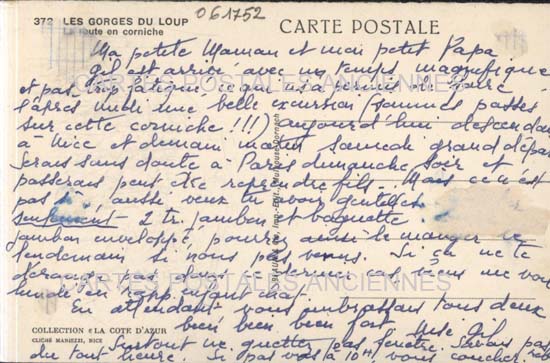 061752
372 LES GORGES DU LOUP
La route en corniche
CARTE POSTALE
Ma petite Maman et mon petit Papa
Gil est arrivé avec un temps magnifique
et pas trop fatigué ce qui n/s a permis de faire
l'après midi une belle excursion (sommes passés
sur cette corniche !!!) aujourd'hui descendons
à Nice et demain matin samedi grand départ
serais sans doute à Paris dimanche soir et
passerais peut être reprendre fils - Mais ce n'est
pas aussi veux tu avoir gentillesse
seulement 2 tr. jambon et baguette.
jambon enveloppé, pourrez ainsi le manger le
lendemain si nous pas venus. Si ça ne te
dérange pas dans ce dernier cas
En attendant vous embrassons tous deux
bien bien bien fort Gil
Surtout ne guettez pas fenêtre. Serais pas
du tout heure. Si pas là à 10h vous coucher
CARTES POSTALES ANCIENNES
CARTES POSTALES ANCIENNES
COLLECTION « LA COTE D'AZUR
CLICHÉ MARIEZZI, NICE